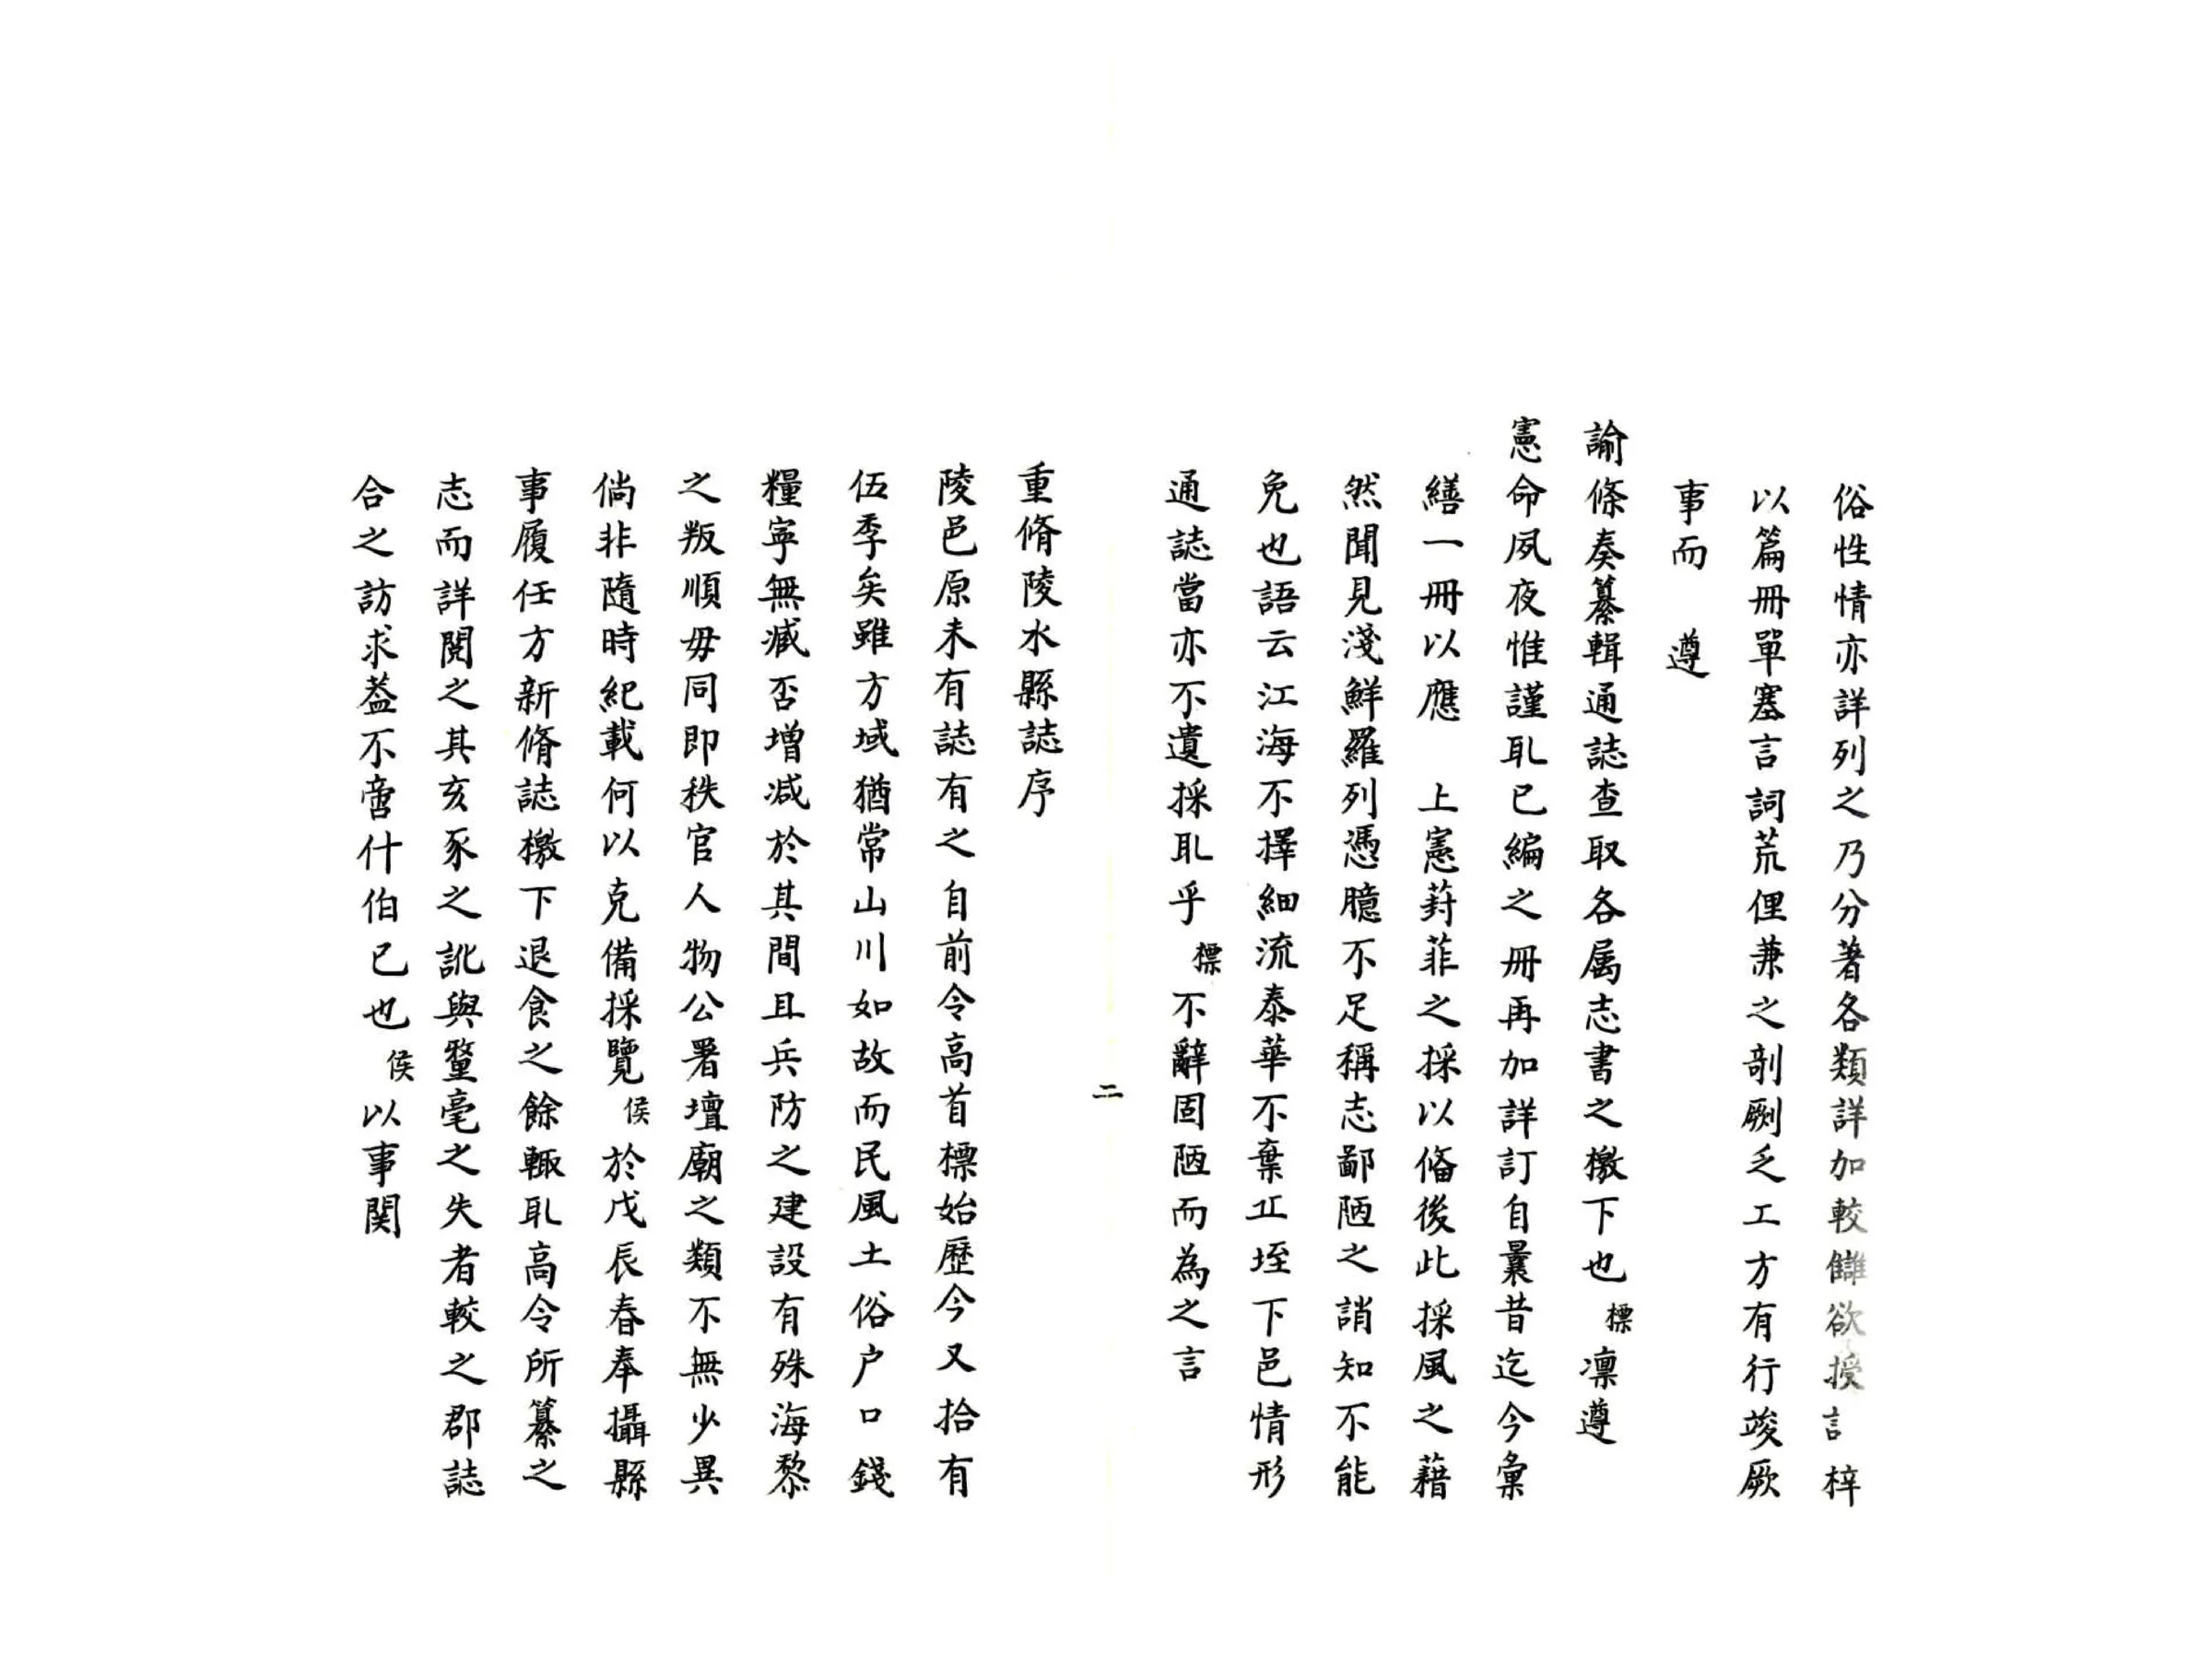 俗性情亦詳列之乃分著各類詳加較讎欲授言梓
以篇冊單塞言詞荒俚兼之剞劂乏工方有行竣厥
事而　遵
諭條奏纂輯通誌查取各属志書之檄下也標凛遵
憲命夙夜惟謹耴已編之冊再加詳訂自曩昔迄今彙
繕一冊以應　上憲葑菲之採以俻後此採風之藉
然聞見淺鮮羅列憑臆不足稱志鄙陋之誚知不能
免也語云江海不擇細流泰華不棄丘垤下邑情形
通誌當亦不遺採耴乎標不辭固陋而為之言
二
重脩陵水縣誌序
陵邑原未有誌有之自前令高首標始歷今又拾有
伍季矣雖方域猶常山川如故而民風土俗户口錢
糧寜無臧否增减於其間且兵防之建設有殊海黎
之叛順毋同即秩官人物公署壇廟之類不無少異
倘非隨時紀載何以克備採覽侯於戊辰春奉攝縣
事履任方新脩誌檄下退食之餘輙耴高令所纂之
志而詳閱之其亥豕之訛與釐毫之失者較之郡誌
合之訪求葢不啻什伯已也侯以事関